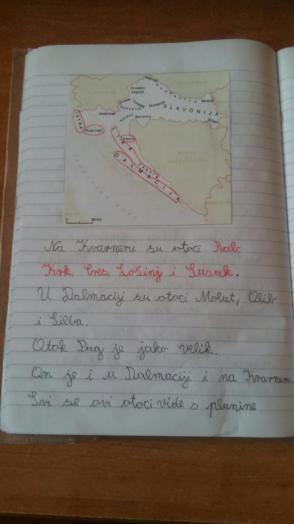 SLAVONIJA
ISTRA
LIKA
DALMACIJA
Na Kvarneru su otoci Rab,
Krk, Cres Lošinj i Susak.
U Dalmaciji su otoci Molat, Olib
i Silba.
Otok Dug je jako velik.
On je i u Dalmaciji i na Kvarneru
Svi se ovi otoci vide s planine